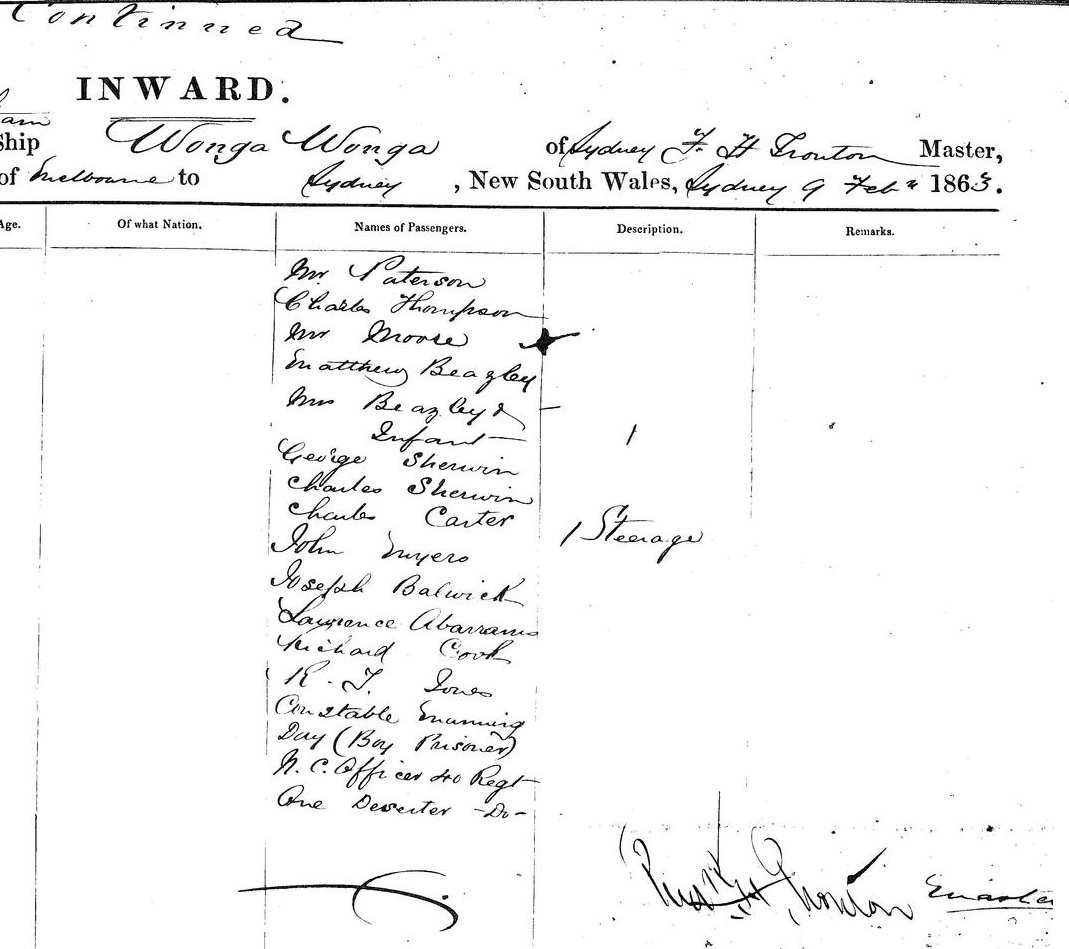 Continued
INWARD.
Ship Wonga Wonga of Sydney F. H Trouton Master,
of Melbourne to Sydney, New South Wales, Sydney 9 Feb 1863.
Age. Of what Nation. Names of Passengers. Description. Remarks.
Mr. Paterson
Charles Thompson
Mr Moore
Matthew Beazley
Mrs Beazley &
Infant 1
George Sherwin
Charles Sherwin
Charles Carter
/ Steerage
John Myers
Joseph Balwick
Lawrence Abarrams
Richard Cook
R. T. Jones
Constable Manning
Day (Boy Prisoner)
N. C. Officer 40 Regt
One Deserter -Do-
H Trouton Master